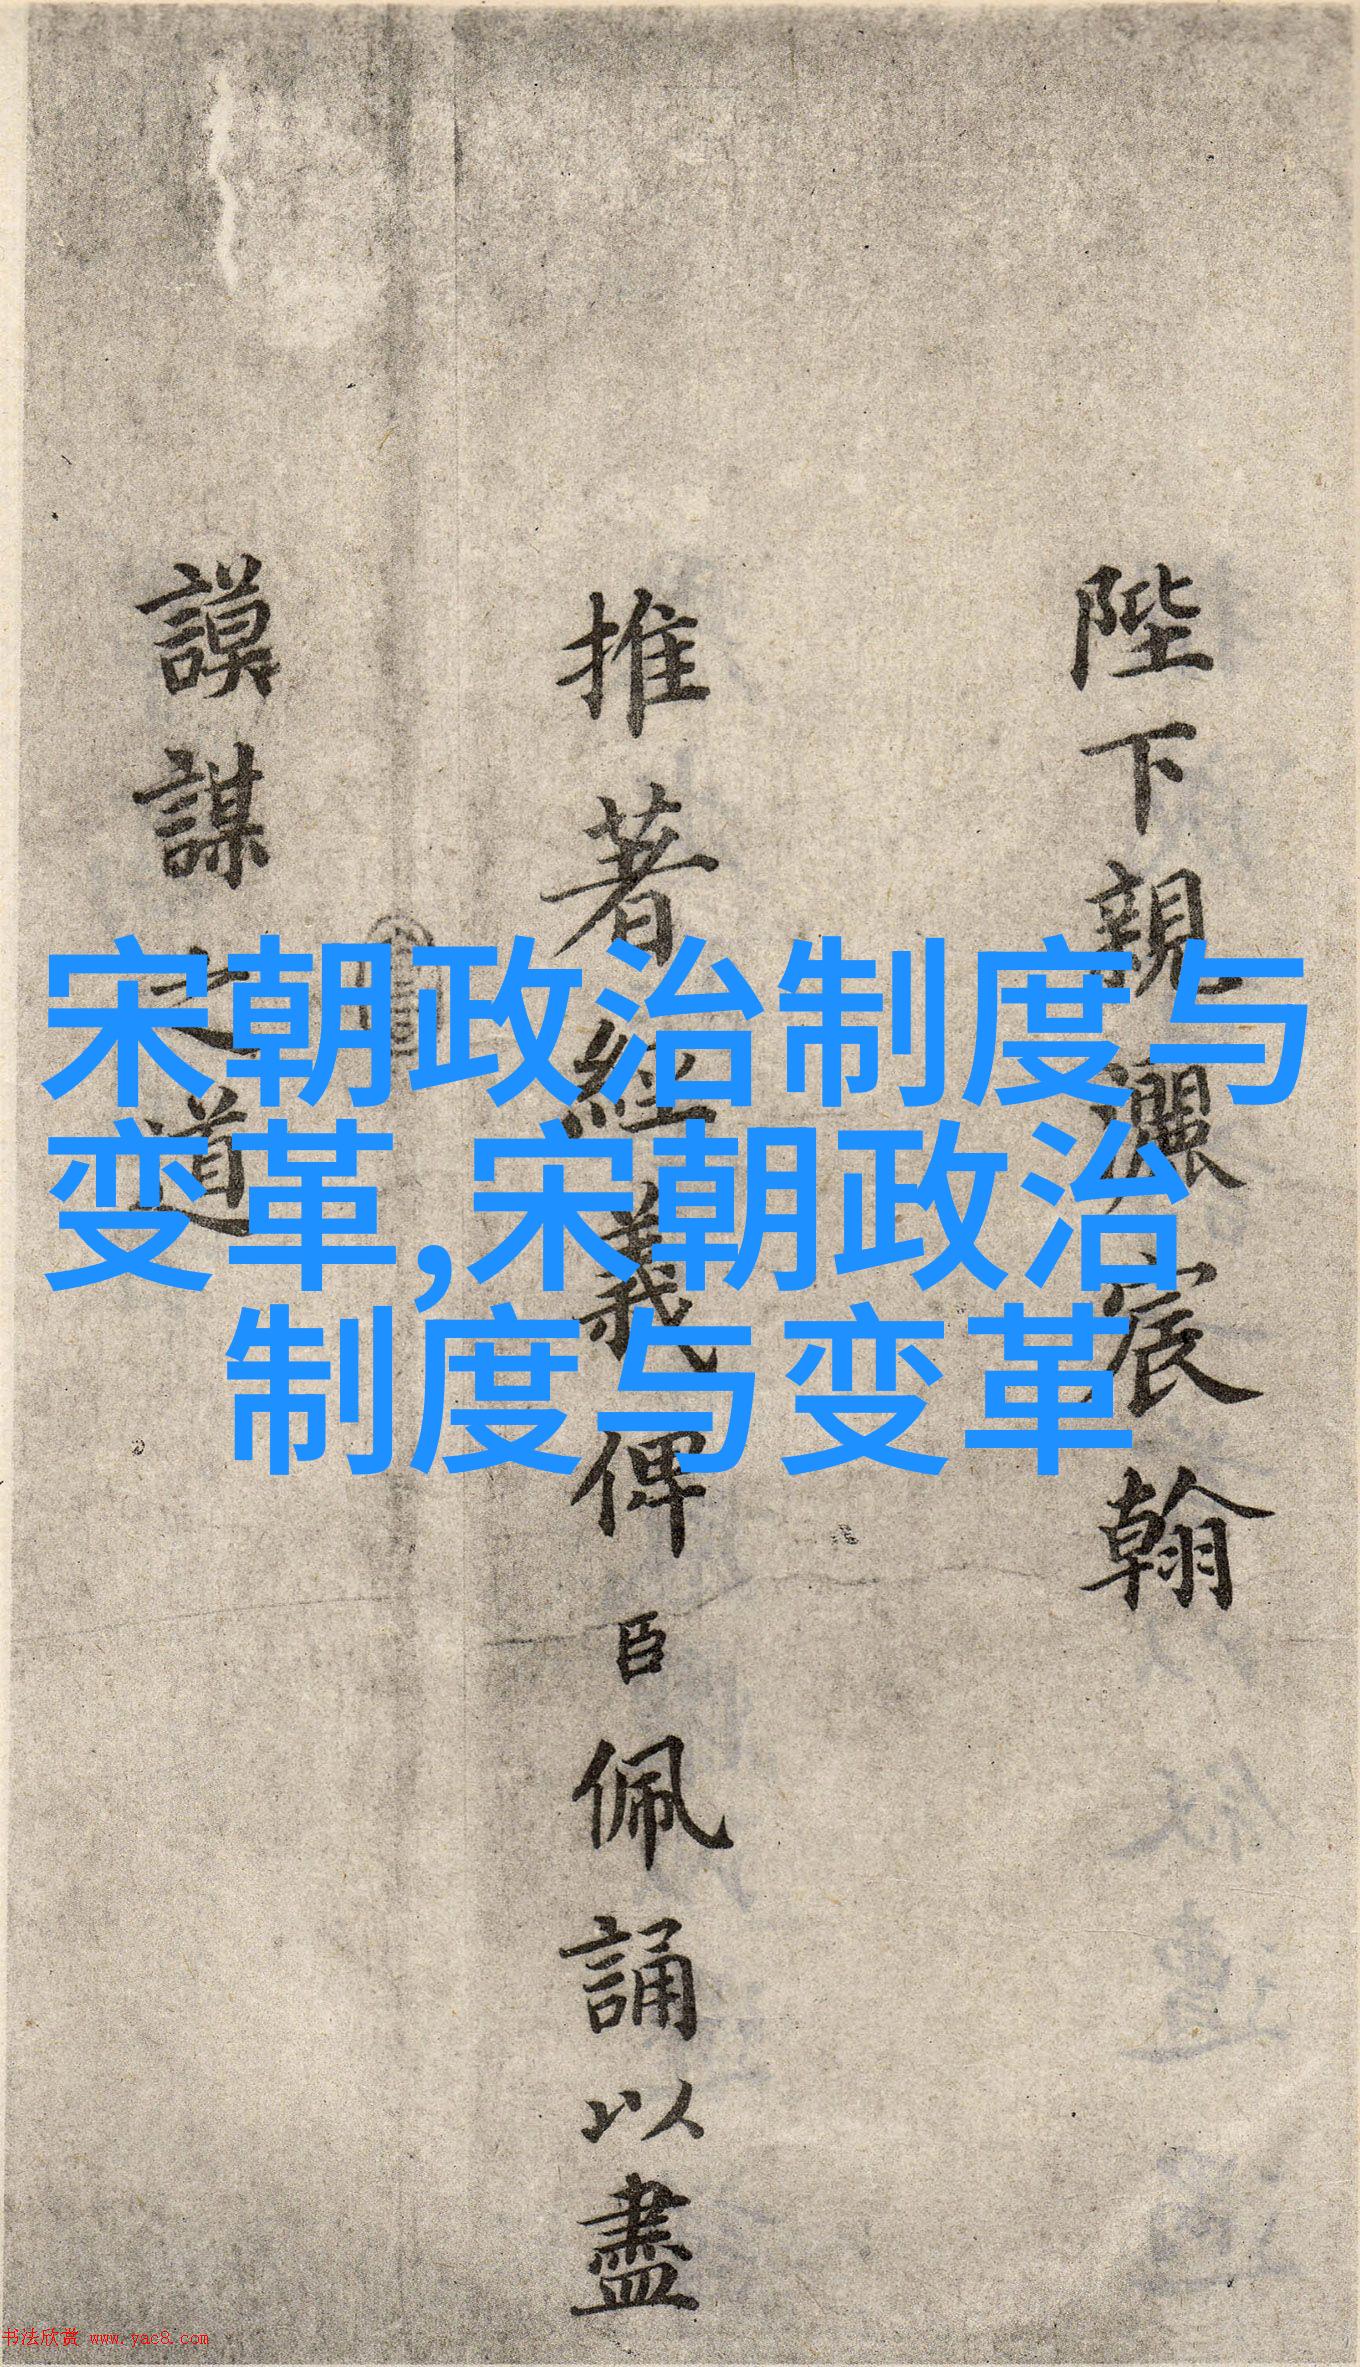 陛下親灑宸翰
推著經義俾臣佩誦以盡
謨謀之道
宋朝政治制度与
变革,宋朝政治
制度与变革
书法欣赏 www.yac8.com